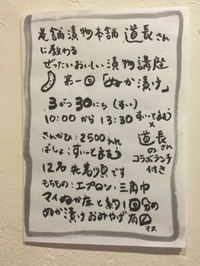 老舗漬物本舗 道長さん
に教わる
ぜったいおいしい漬物講座
第一回「ぬか漬け」
3がつ30にち(すい)
10:00 から 13:30 すいっとまむ
×
道長
さんの
コラボランチ
付き
さんかひ:2500えん
ばしょ:すいっとまむ
12名 先着順です
もちもの:エプロン・三角巾
マイぬか床と約1回分の
ぬか漬けおみやげ有り
マス